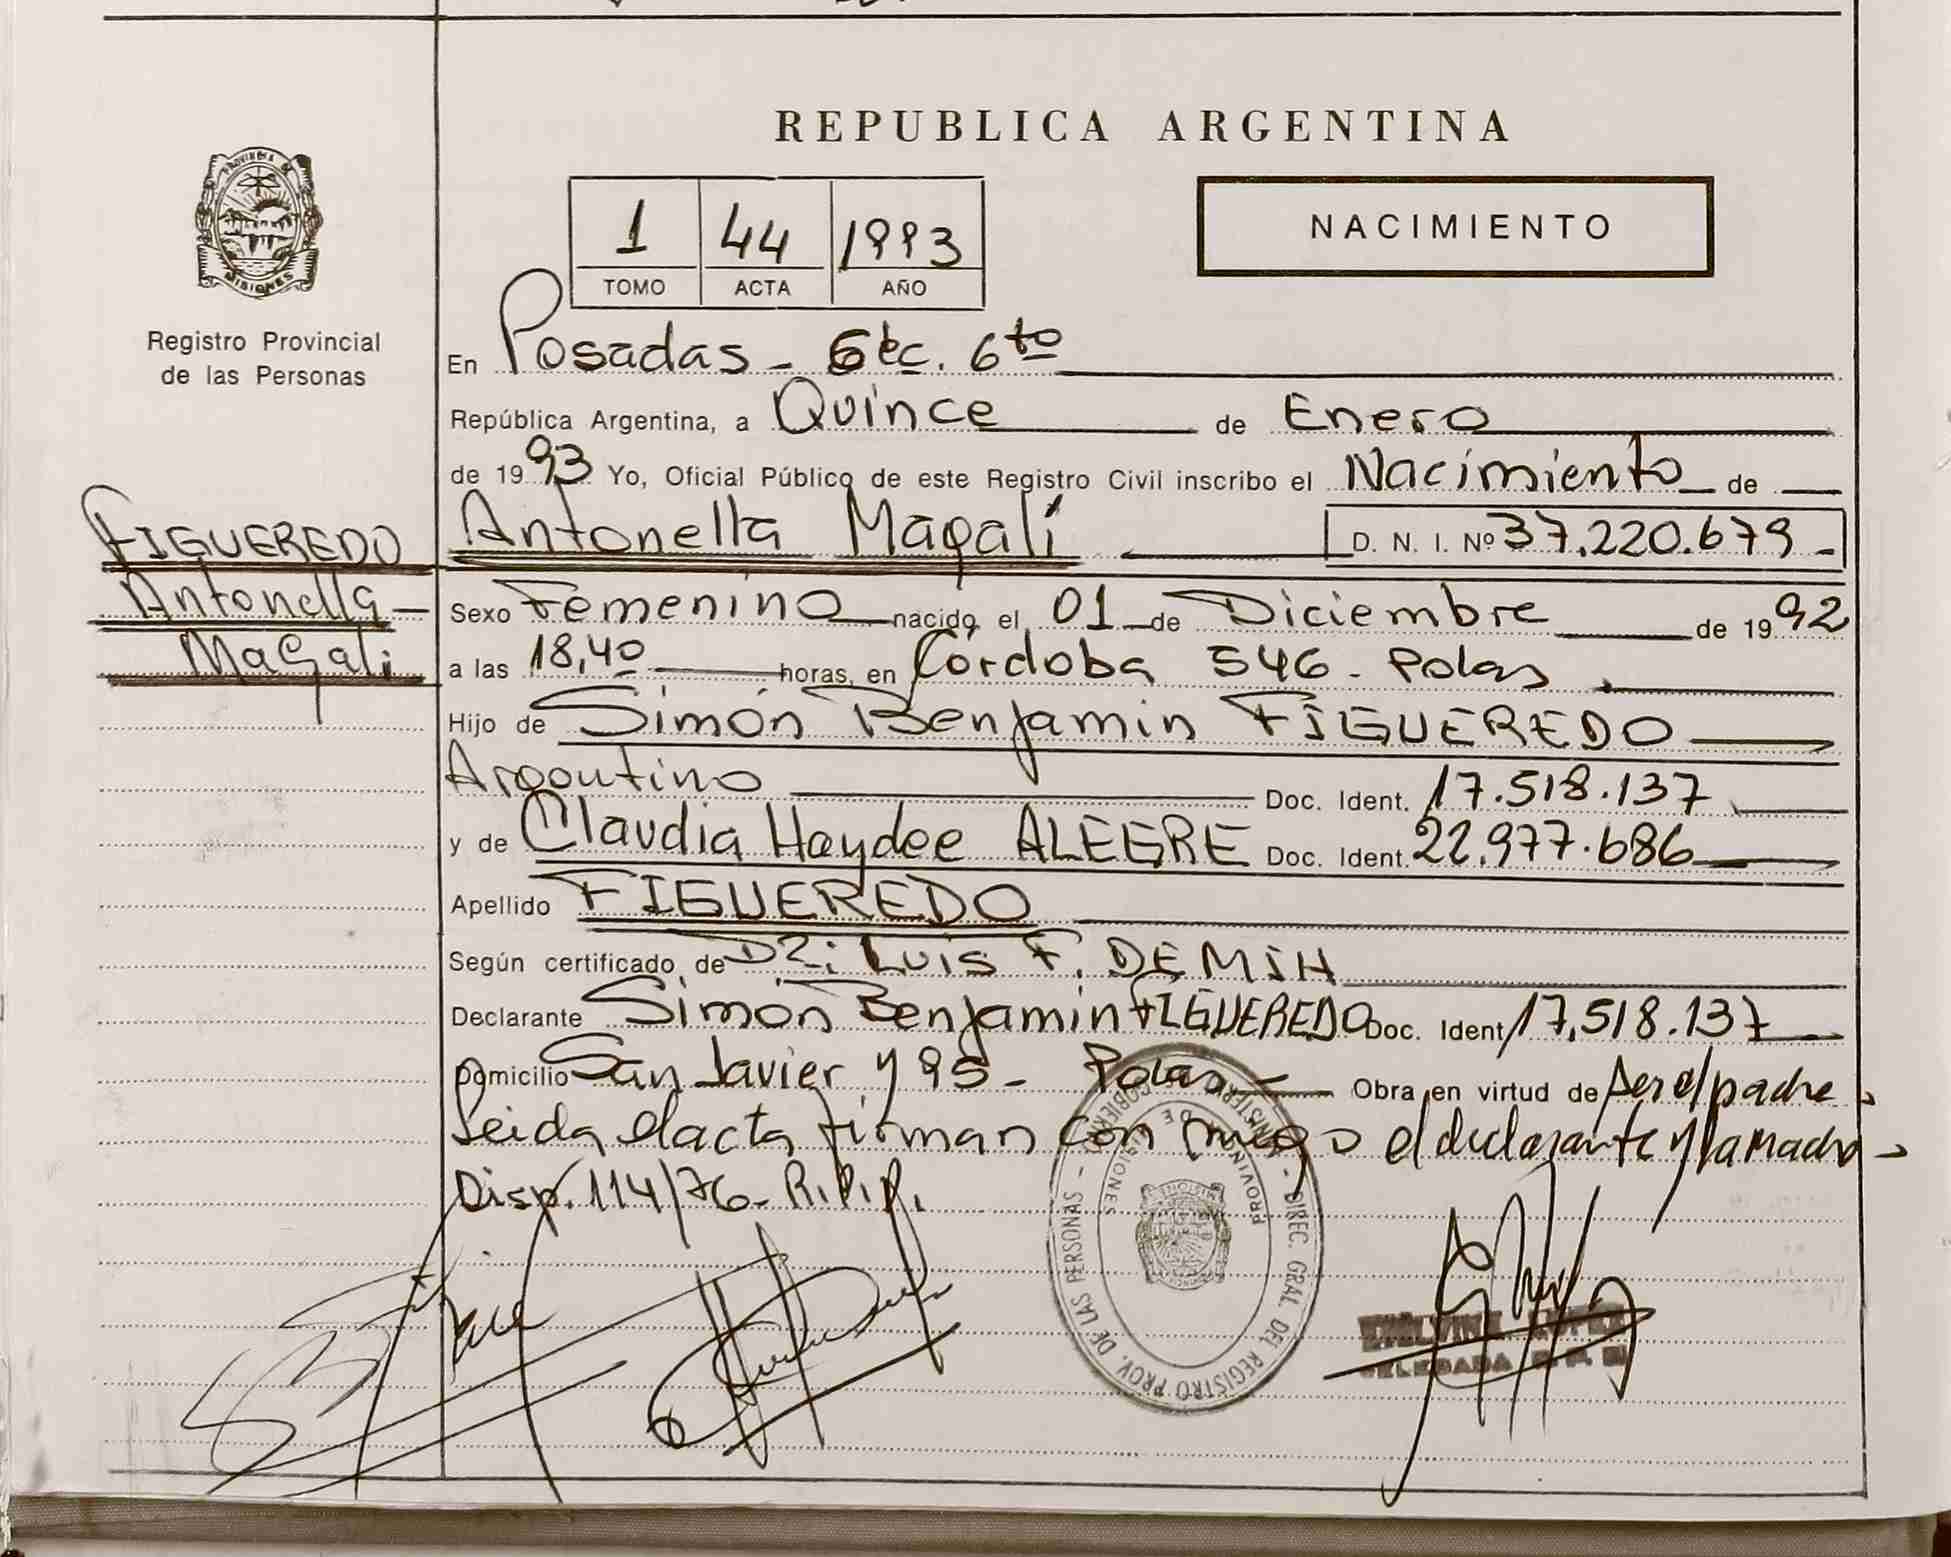 REPUBLICA ARGENTINA
PROVINCIA DE
MISIONES
Registro Provincial
de las Personas
1 44 1993
TOMO ACTA AÑO
NACIMIENTO
En Posadas - Sec. 6to
República Argentina, a Quince de Enero
de 1993 Yo, Oficial Público de este Registro Civil inscribo el Nacimiento de
FIGUEREDO
Antonella
Magali
Antonella Magali D. N. I. Nº 37.220.679 -
Sexo Femenino nacido el 01 de Diciembre de 1992
a las 18,40 horas, en Cordoba 546 - Pdas
Hijo de Simón Benjamin FIGUEREDO
Argentino Doc. Ident. 17.518.137
y de Claudia Haydee ALEGRE Doc. Ident. 22.977.686
Apellido FIGUEREDO
Según certificado de Luis F. DEMIH
Declarante Simón Benjamin FIGUEREDO Doc. Ident 17.518.137
Domicilio San Javier y 95 - Pdas - Obra en virtud de ser el padre
Leida el acta firman con migo el declarante y la madre
Disp. 114/76 - R.P.P.
DIREC. GRAL. DEL REGISTRO PROV. DE LAS PERSONAS -
PROVINCIA DE MISIONES
DELEGADA